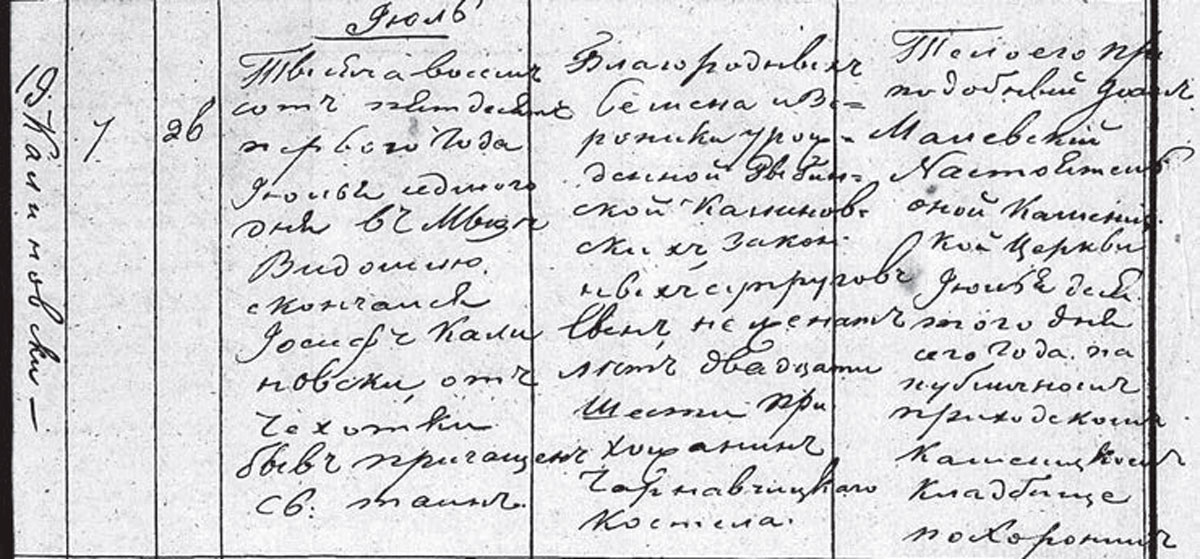 Калиновски
7
26
Июль
Тысяча восемь
сотъ пятдесятъ
первого Года
Июля седмого
дня въ Мѣст
Видомлю
скончался
Іосифъ Кали
новски, отъ
чехотки
бывъ причащенъ
св. таинъ.
Благородныхъ
и Ве=
роники урож=
денной
ской Калинов=
скихъ закон
ныхъ супруговъ
сынъ, не женатъ
лѣтъ двадцати
шести при
хожанинъ
Чарнавчицкаго
костела.
Тело его пре
подобный
Малевский
Настоятель
оной Камениц
кой Церкви
Июля деся
того дня
сего Года. на
публичномъ
приходскомъ
Каменицкомъ
кладбище
похоронилъ